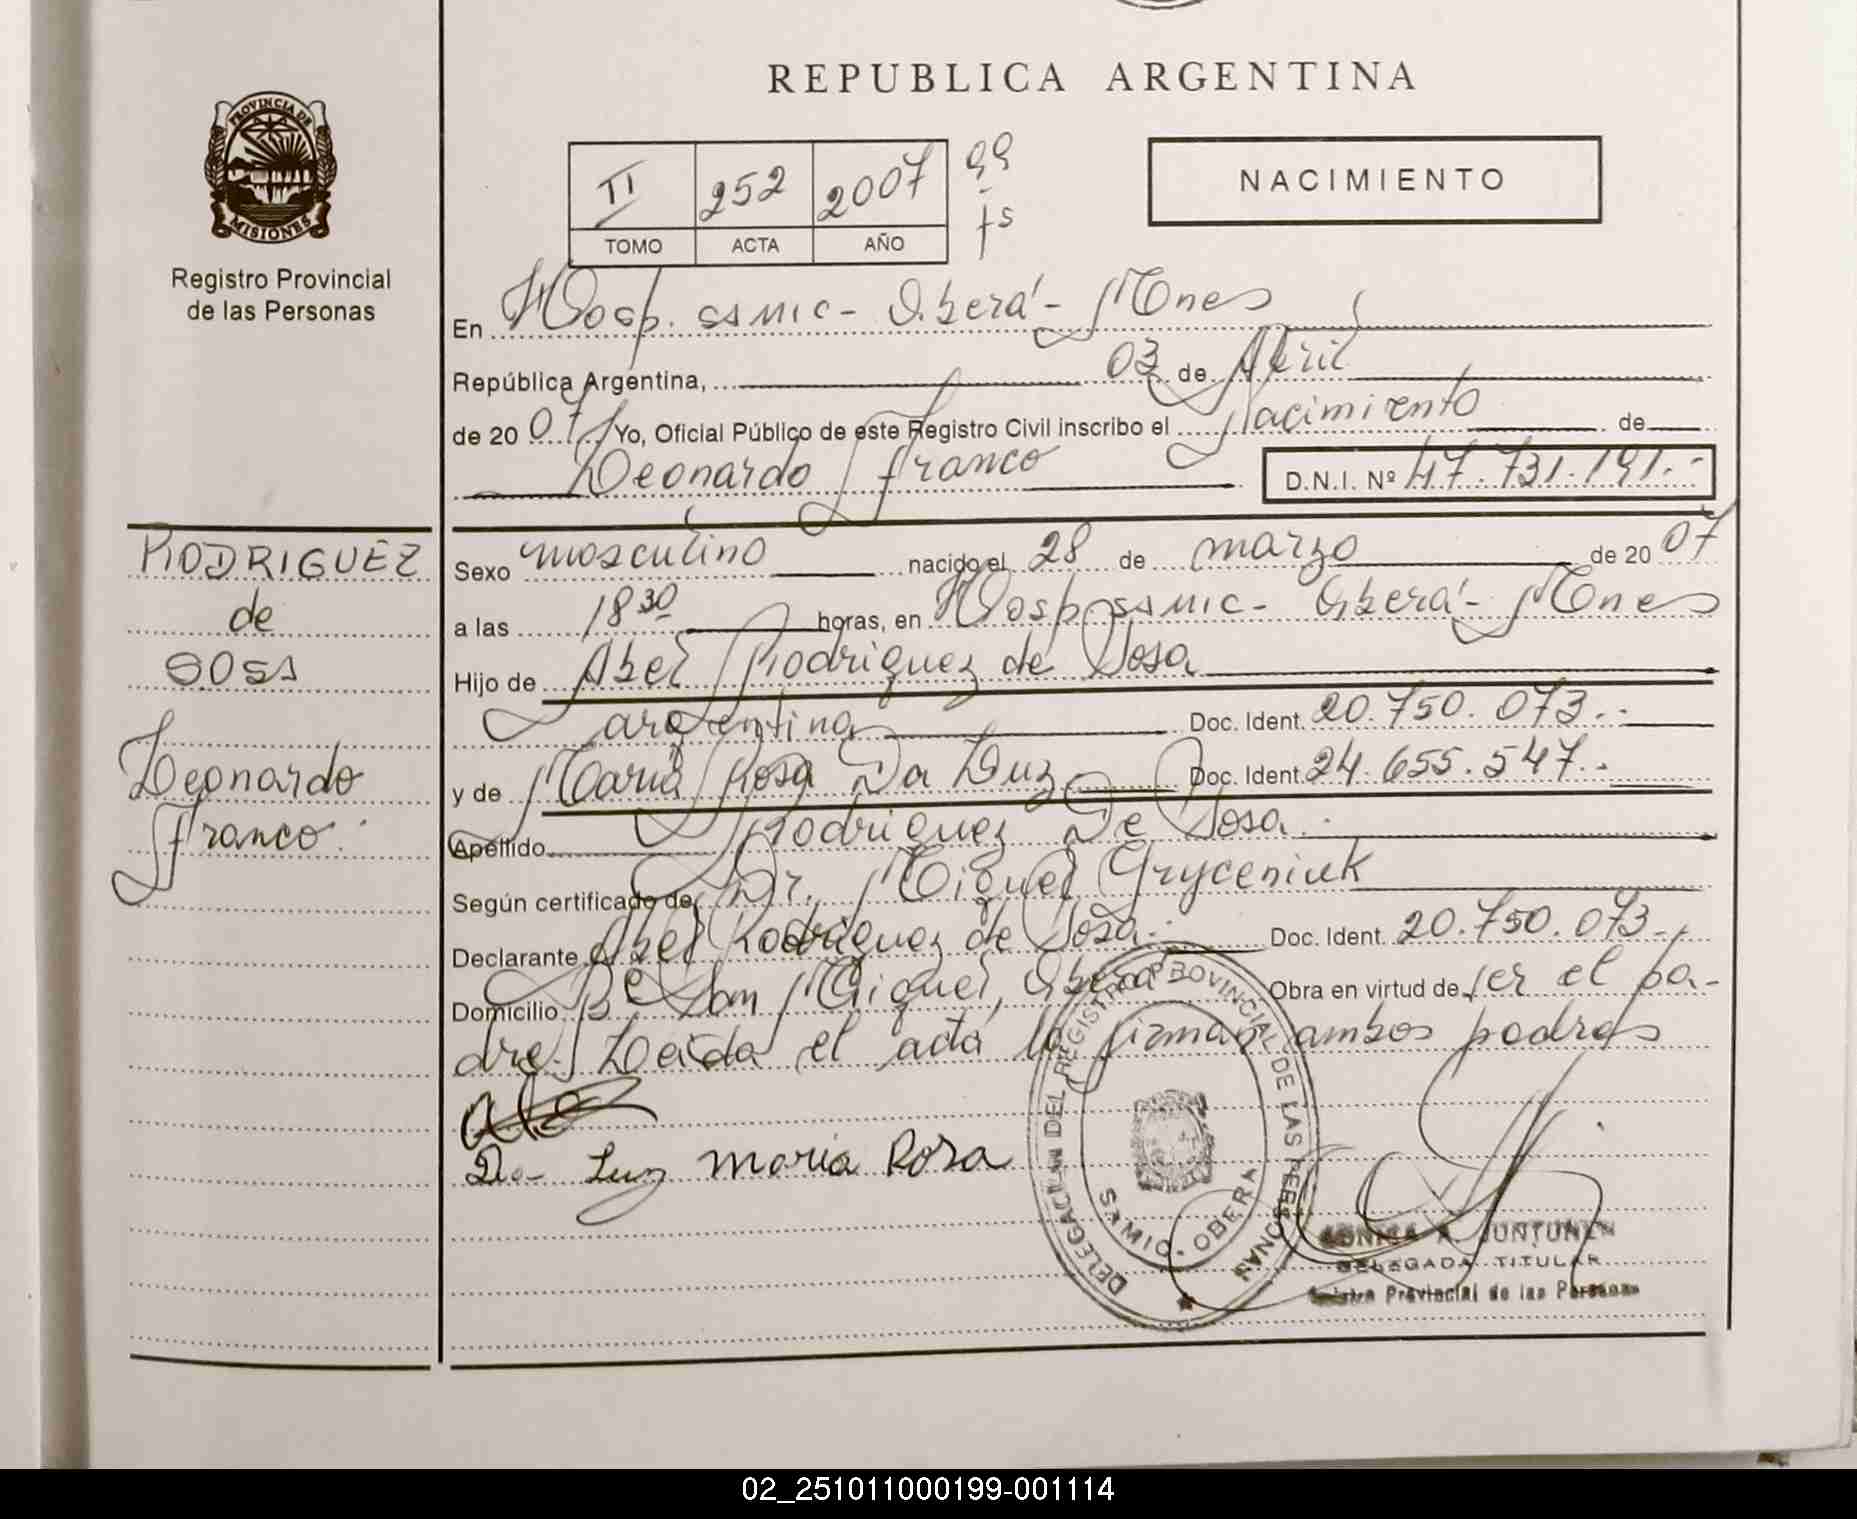 REPUBLICA ARGENTINA
PROVINCIA DE MISIONES
Registro Provincial
de las Personas
II 252 2007 99
TOMO ACTA AÑO fs
NACIMIENTO
En Hosp. SAMIC - Oberá - Mnes
República Argentina, 03 de Abril
de 2007 Yo, Oficial Público de este Registro Civil inscribo el Nacimiento de
Leonardo Franco D.N.I. Nº 47.731.191.-
RODRIGUEZ
de
SOSA
Leonardo
Franco.
Sexo masculino nacido el 28 de marzo de 2007
a las 18 30 horas, en Hosp SAMIC - Oberá - Mnes
Hijo de Abel Rodriguez de Sosa
argentina Doc. Ident. 20.750.073.-
y de Maria Rosa Da Luz Doc. Ident. 24.655.547.-
Apellido Rodriguez De Sosa.
Según certificado de Dr. Miguel Gryceniuk
Declarante Abel Rodriguez de Sosa.- Doc. Ident. 20.750.073.-
Domicilio Bº San Miguel, Oberá Obra en virtud de ser el pa-
dre. Leída el acta la firman ambos padres
Da Luz Maria Rosa
DELEGACION DEL REGISTRO PROVINCIAL DE LAS PERSONAS
SAMIC - OBERA
A. JUNTUNEN
DELEGADA TITULAR
Registro Provincial de las Personas
02_251011000199-001114